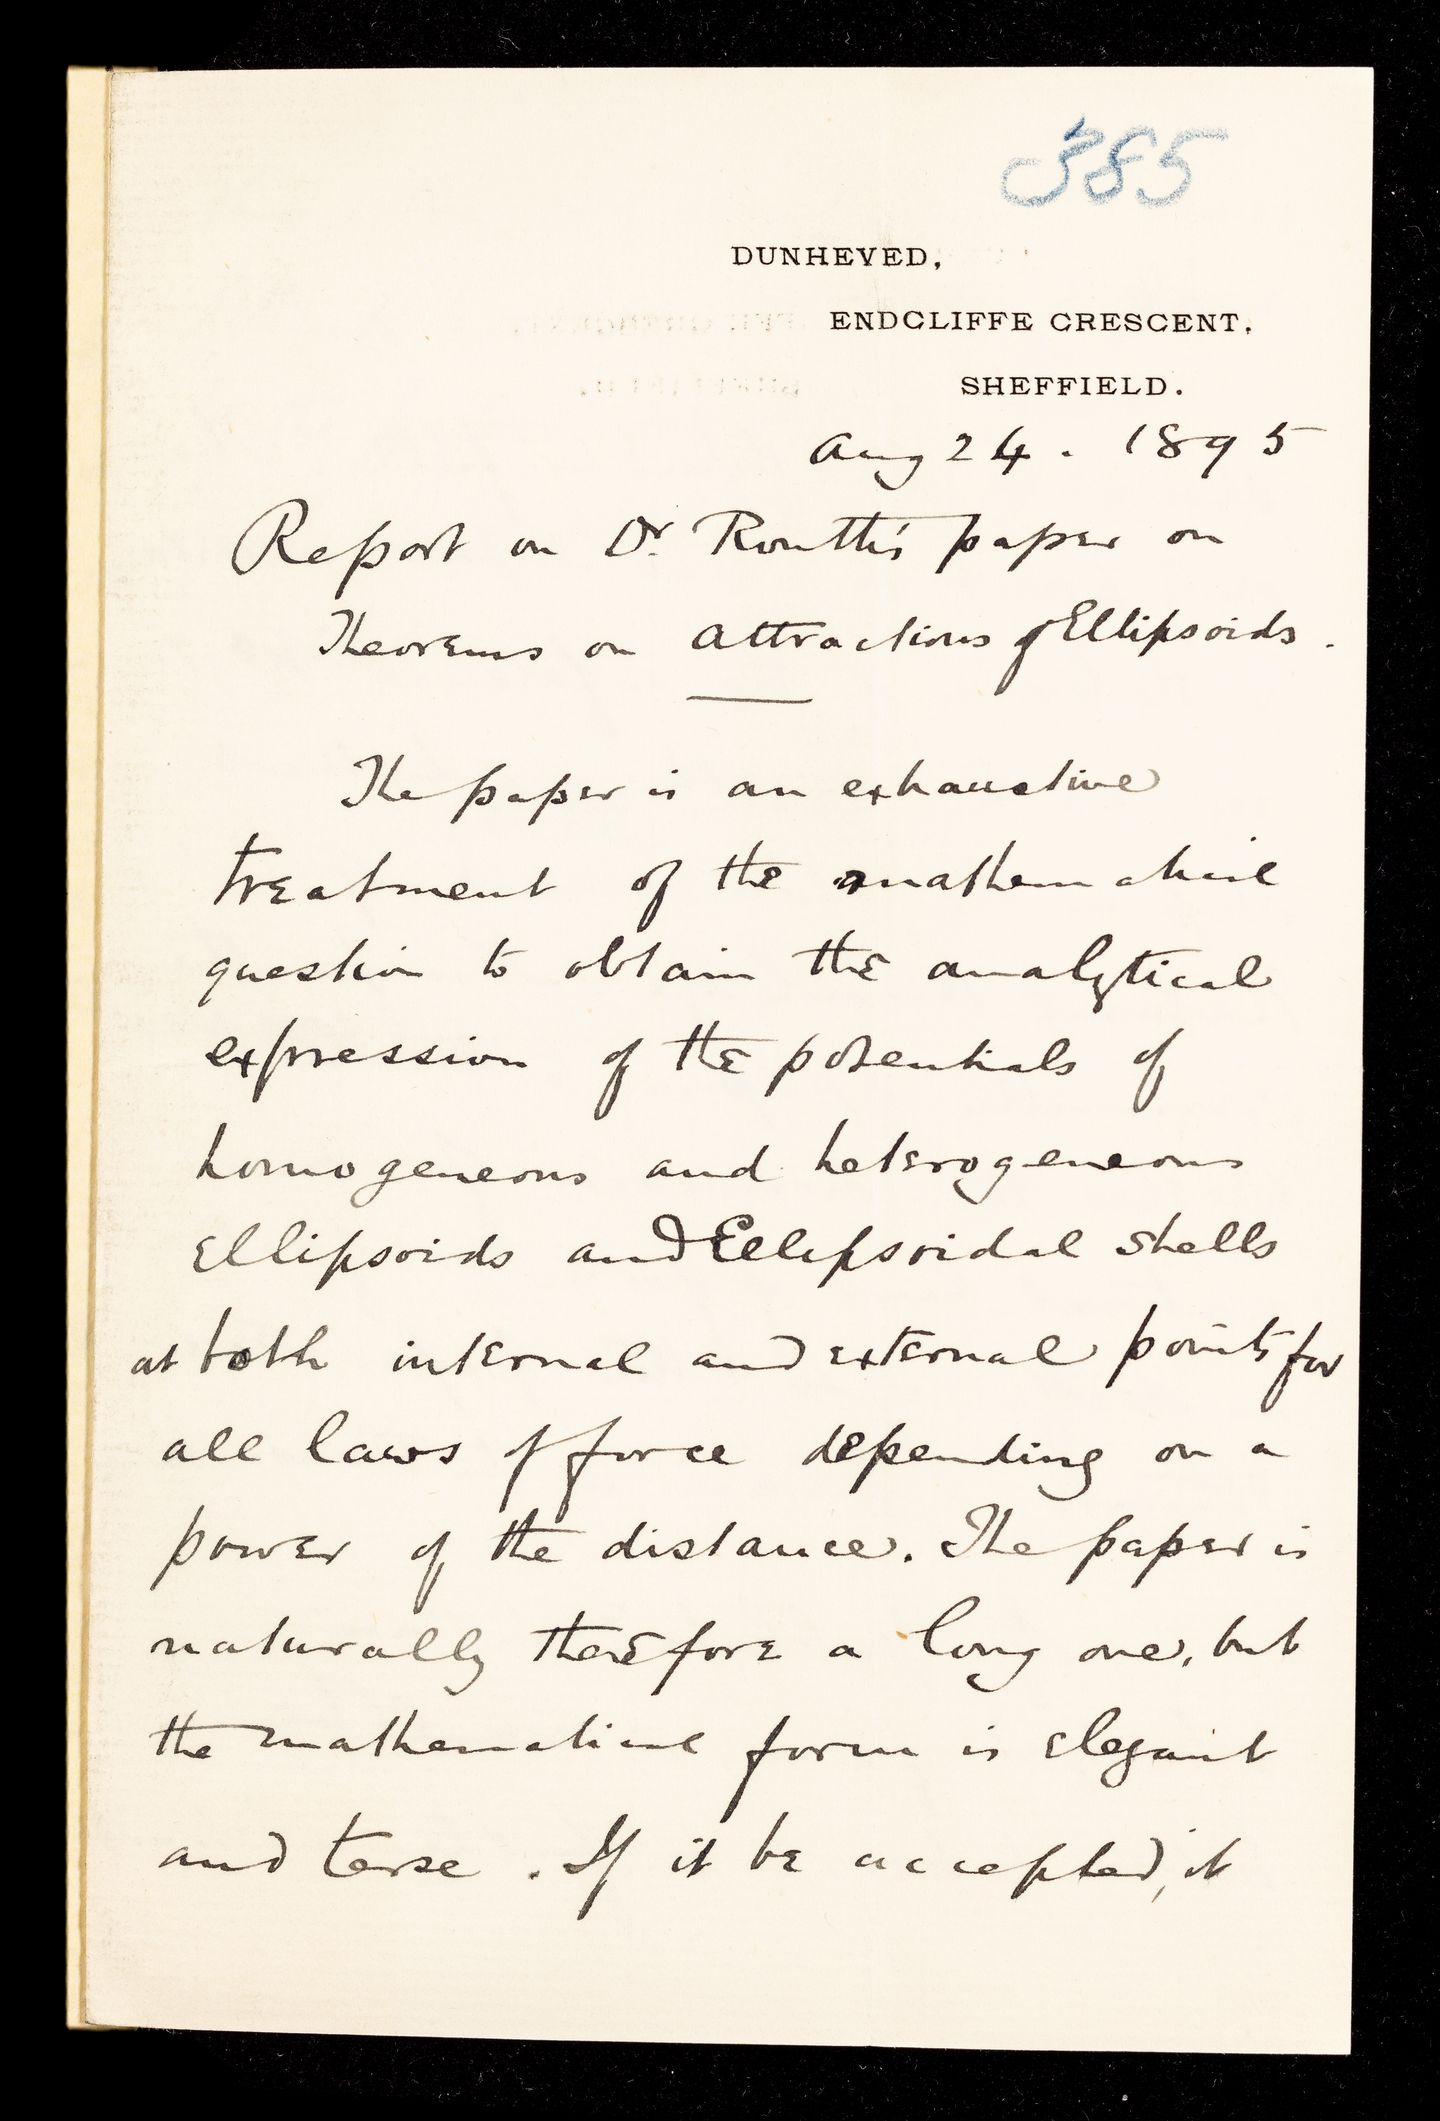 385
DUNHEVED,
ENDCLIFFE CRESCENT,
SHEFFIELD.
Aug 24. 1895
Report on Dr. Routh's paper on
Theorems on Attractions of Ellipsoids.
The paper is an exhaustive
treatment of the mathematical
question to obtain the analytical
expression of the potentials of
homogeneous and heterogeneous
Ellipsoids and Ellipsoidal shells
at both internal and external points for
all laws of force depending on a
power of the distance. The paper is
naturally therefore a long one, but
the mathematical form is elegant
and terse. If it be accepted, it